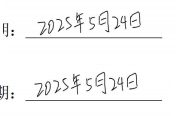 月：2025年5月24日
期：2025年5月24日